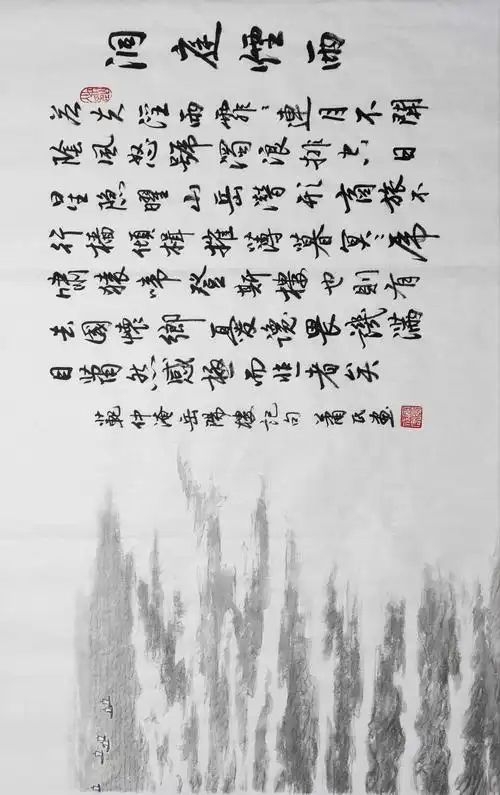 洞庭煙雨
若夫淫雨霏〻連月不開
陰風怒號濁浪排空日
星隱曜山岳潛形商旅不
行檣傾楫摧薄暮冥〻虎
嘯猿啼登斯樓也則有
去國懷鄉憂讒畏譏滿
目蕭然感極而悲者矣
範仲淹岳陽樓記句 蕭民畫